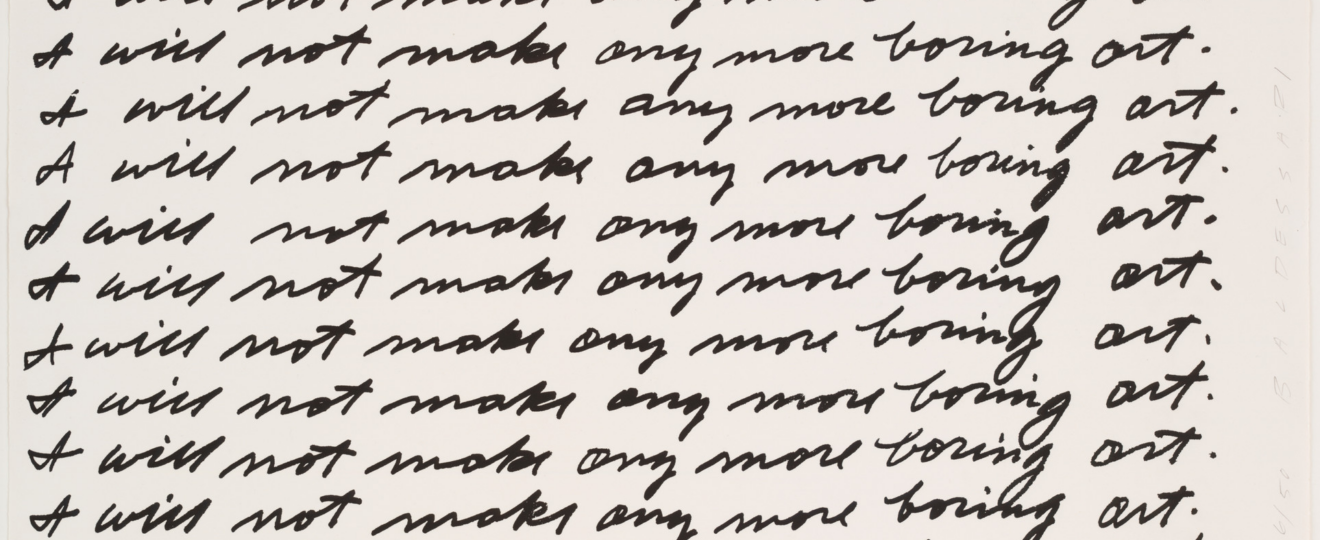 I will not make any more boring art.
I will not make any more boring art.
I will not make any more boring art.
I will not make any more boring art.
I will not make any more boring art.
I will not make any more boring art.
I will not make any more boring art.
I will not make any more boring art.
I will not make any more boring art.
BALDESSARI